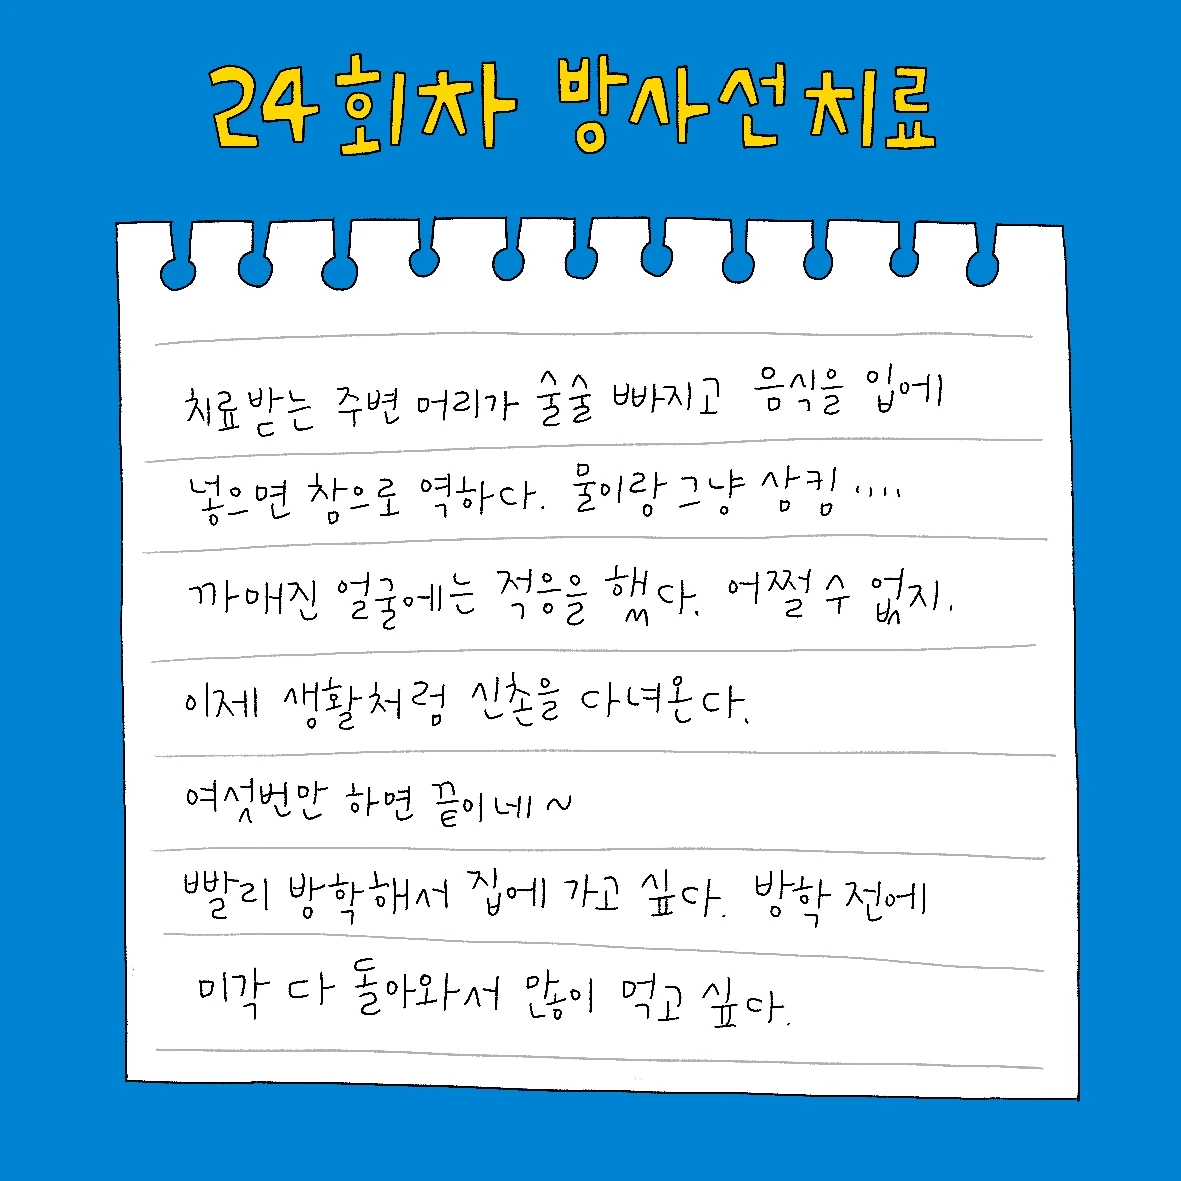 24회차 방사선치료
치료받는 주변 머리가 술술 빠지고 음식을 입에
넣으면 참으로 역하다. 물이랑 그냥 삼킴....
까매진 얼굴에는 적응을 했다. 어쩔 수 없지.
이제 생활처럼 신촌을 다녀온다.
여섯번만 하면 끝이네~
빨리 방학해서 집에 가고 싶다. 방학 전에
미각 다 돌아와서 많이 먹고 싶다.